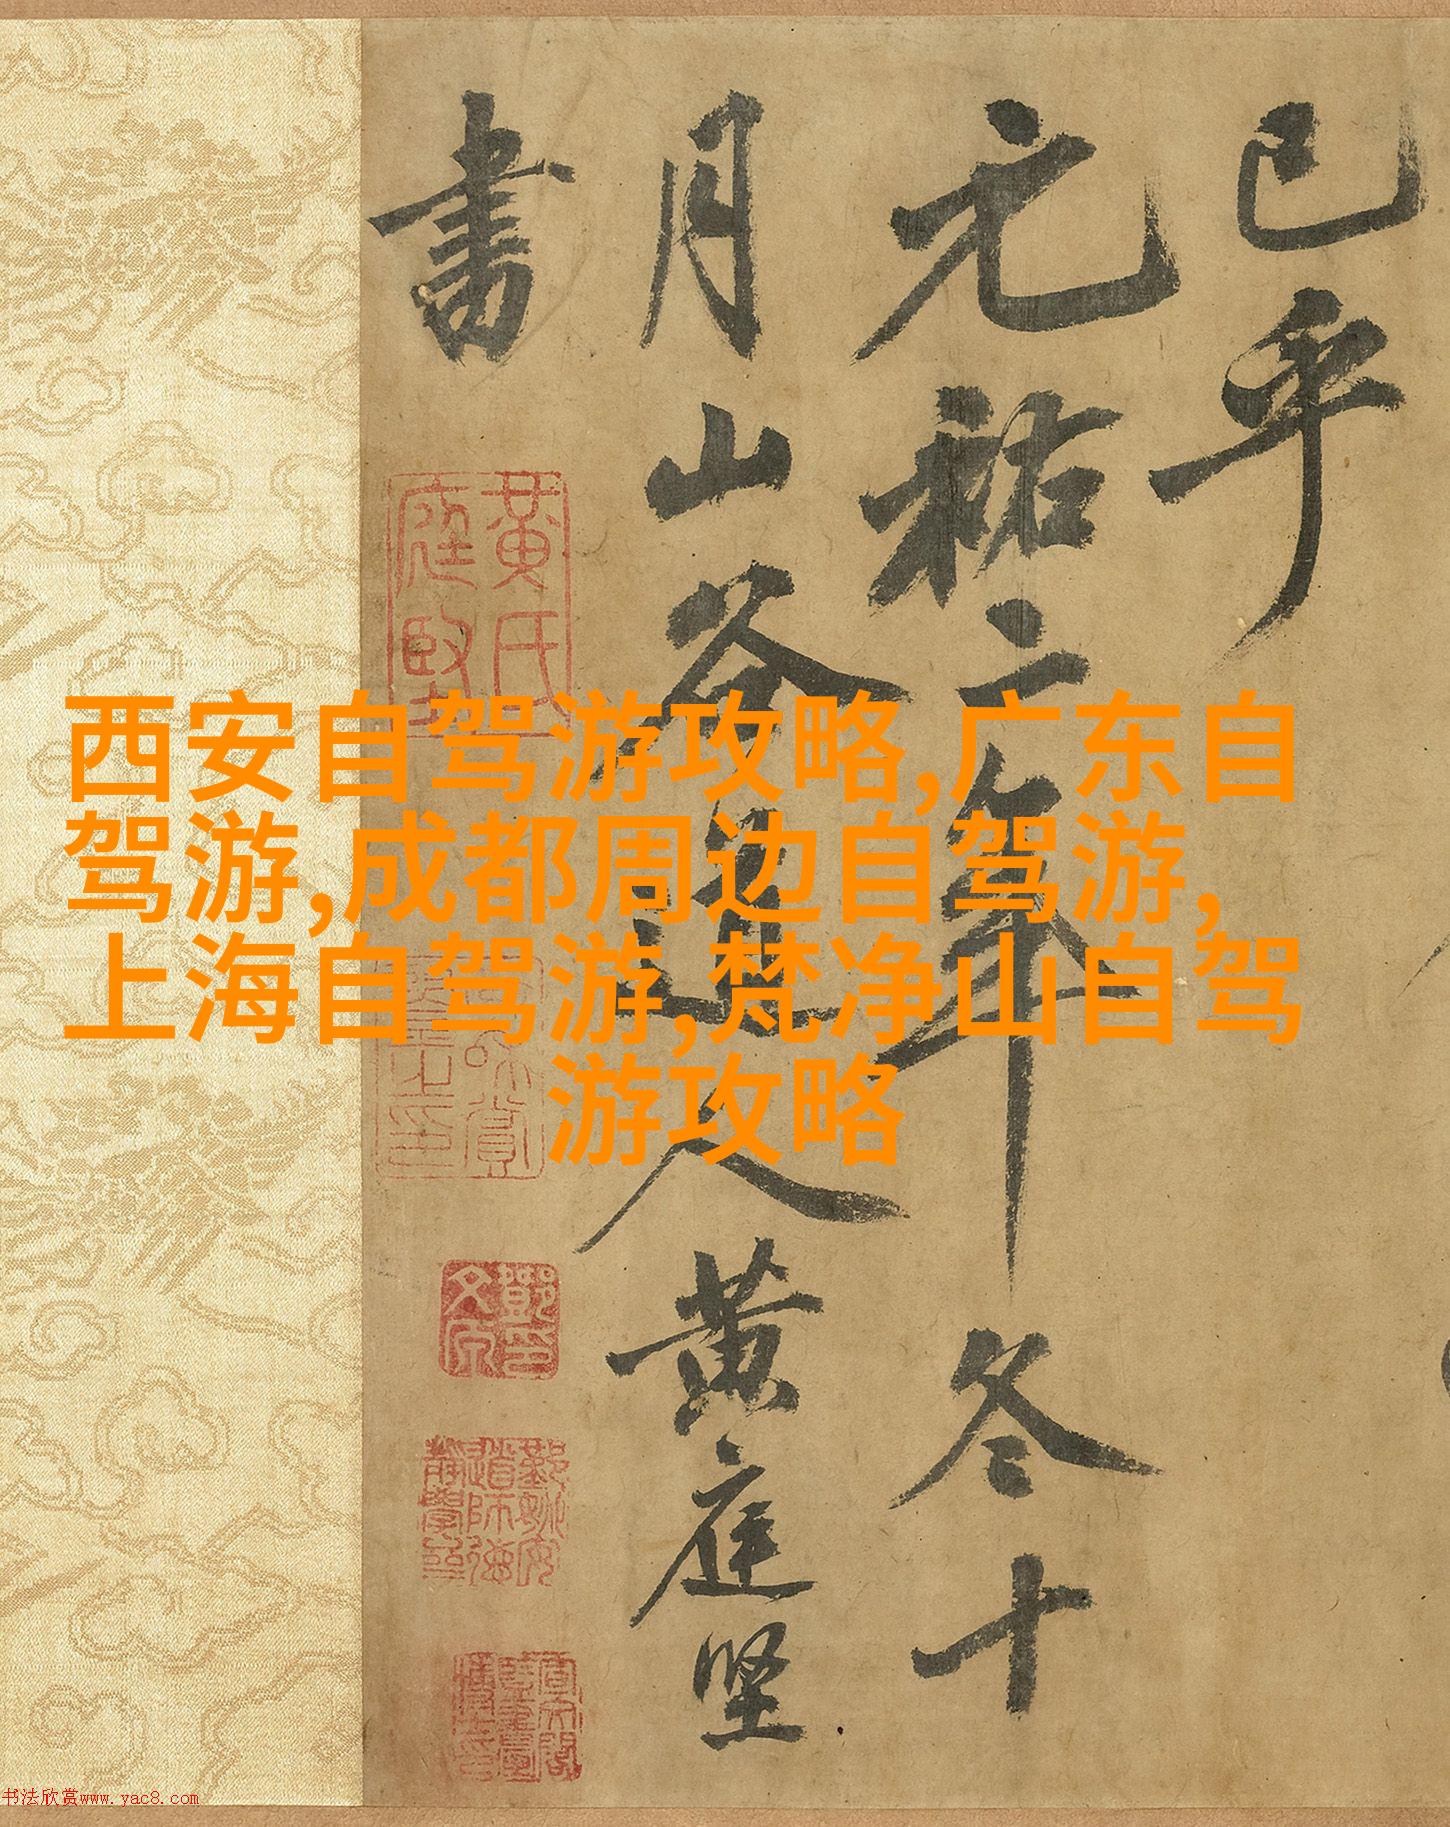 已乎
元祐二年冬十
月山谷道人黄庭坚
書
黄氏
庭堅
西安自驾游攻略,广东自
驾游,成都周边自驾游,
上海自驾游,梵净山自驾
游攻略
书法欣赏www.yac8.com